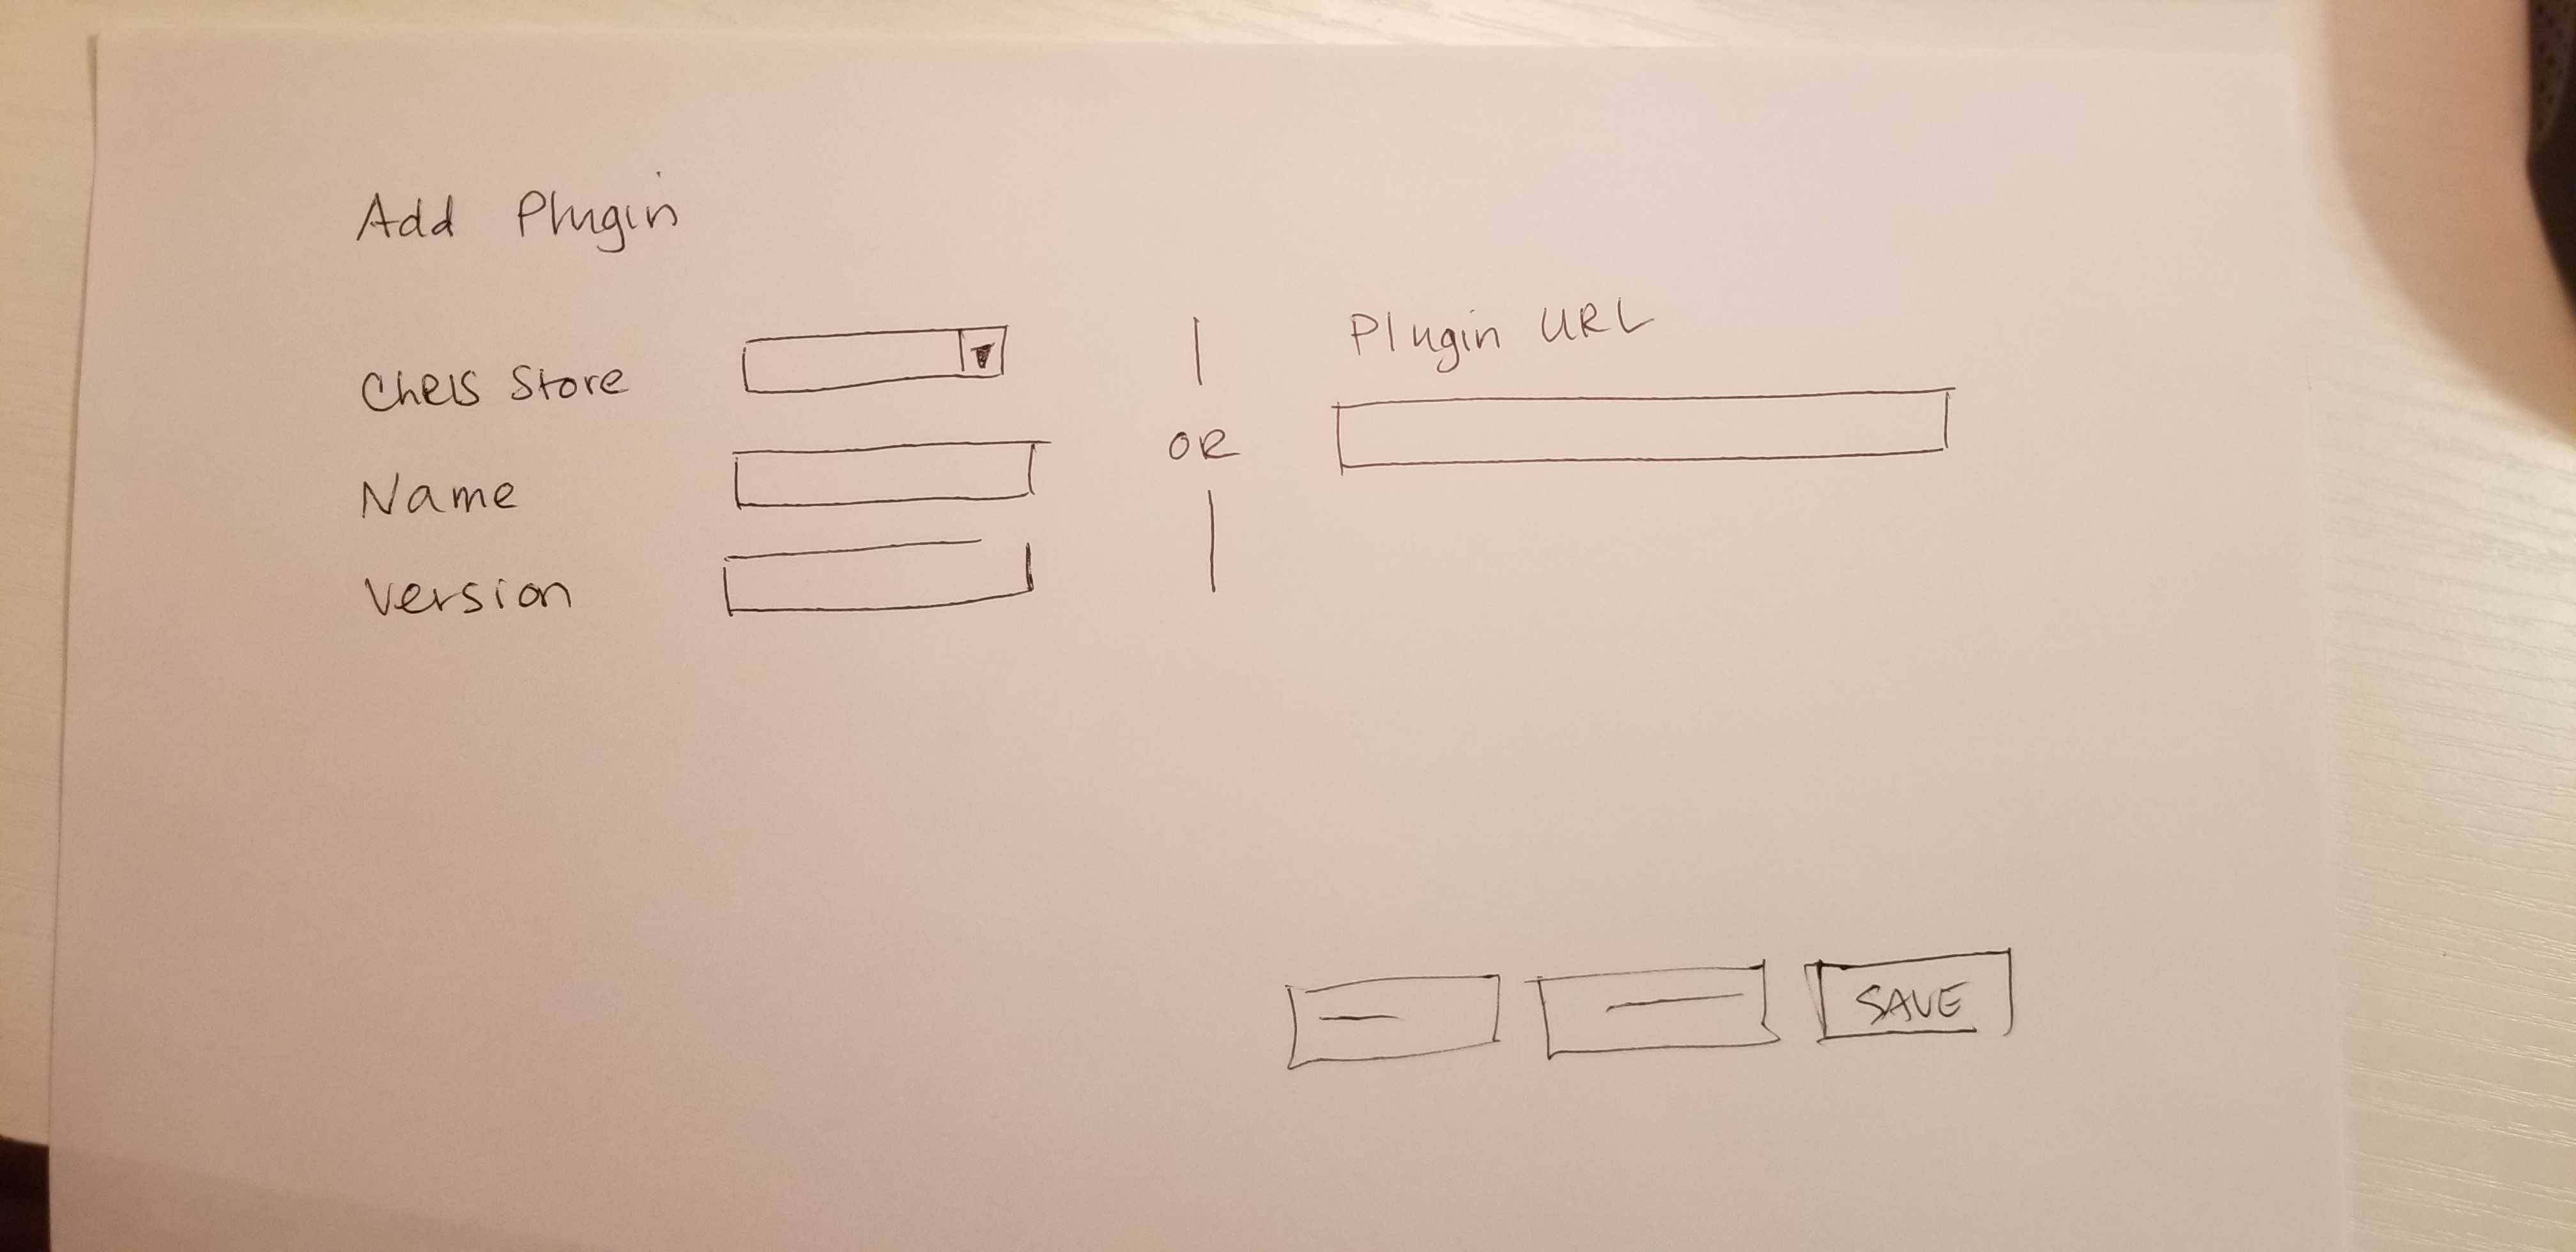 Add Plugin
ChRIS Store
Name
Version
OR
Plugin URL
SAVE